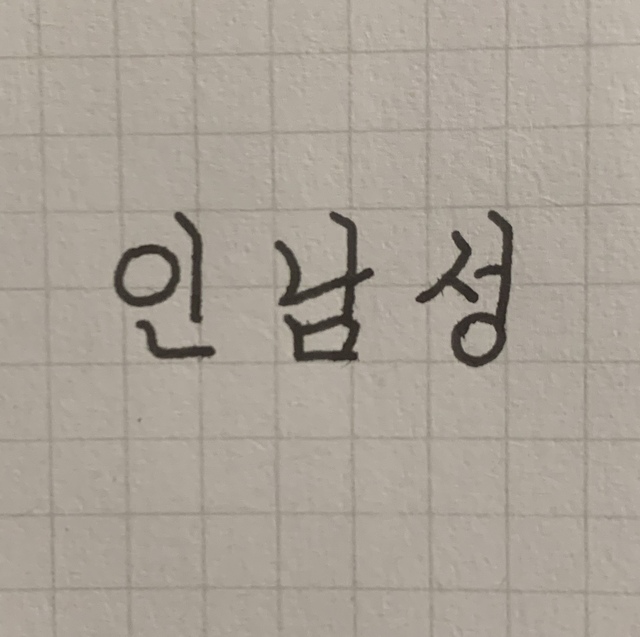 인남성